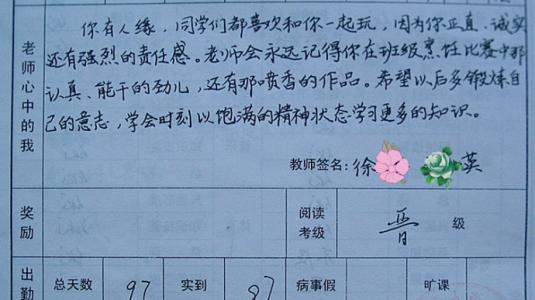 老师心中的我
你有人缘，同学们都喜欢和你一起玩，因为你正直、诚实
还有强烈的责任感。老师会永远记得你在班级烹饪比赛中那
认真、能干的劲儿，还有那喷香的作品。希望以后多锻炼自
己的意志，学会时刻以饱满的精神状态学习更多的知识。
教师签名：徐 英
奖励
阅读考级 晋 级
出勤 总天数 97 实到 87 病事假 旷课